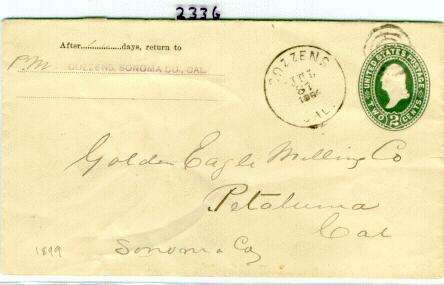 2336
After............days, return to
P.M. COZZENS, SONOMA CO., CAL.
COZZENS
CAL.
UNITED STATES POSTAGE
TWO 2 CENTS
Golden Eagle Milling Co
Petaluma
Cal
Sonoma Co
1899